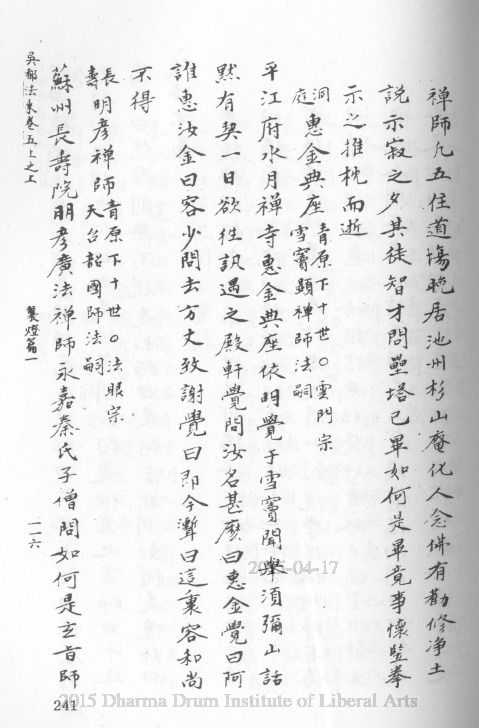 禪師凡五住道場晚居池州杉山庵化人念佛有勸修淨土
說示寂之夕其徒智才問壘塔已畢如何是畢竟事懷豎拳
示之推枕而逝
洞庭惠金典座 青原下十世○雲門宗 雪竇顯禪師法嗣
平江府水月禪寺惠金典座依明覺于雪竇聞舉須彌山話
默有契一日欲往訊遇之殿軒覺問汝名甚麼曰惠金覺曰阿
誰惠汝金曰容少問去方丈致謝覺曰即今聻曰這裏容和尚
不得
長壽明彥禪師 青原下十世○法眼宗 天台韶國師法嗣
蘇州長壽院朋彥廣法禪師永嘉秦氏子僧問如何是玄旨師
吳都法乘卷五上之上 襲燈篇一 一一六
241
2015-04-17
2015 Dharma Drum Institute of Liberal Arts